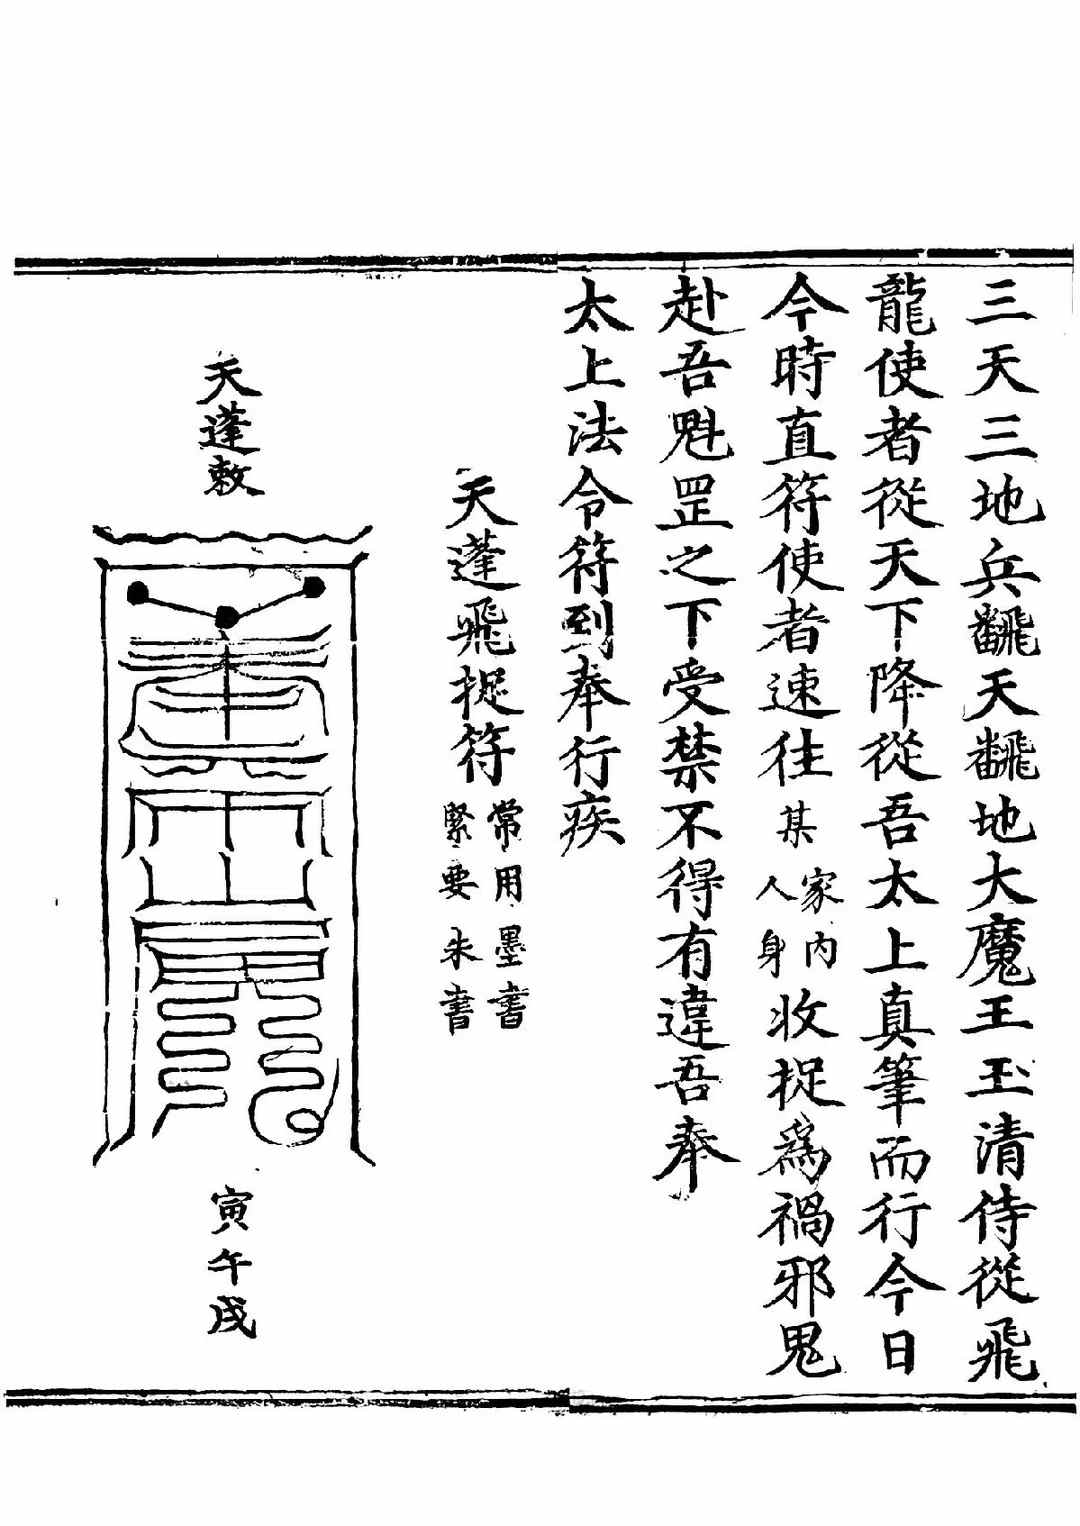 三天三地兵飜天飜地大魔王玉清侍從飛
龍使者從天下降從吾太上真筆而行今日
今時直符使者速往某家內人身收捉為禍邪鬼
赴吾魁罡之下受禁不得有違吾奉
太上法令符到奉行疾
天蓬飛捉符
常用墨書
緊要朱書
天蓬敕
寅午戌